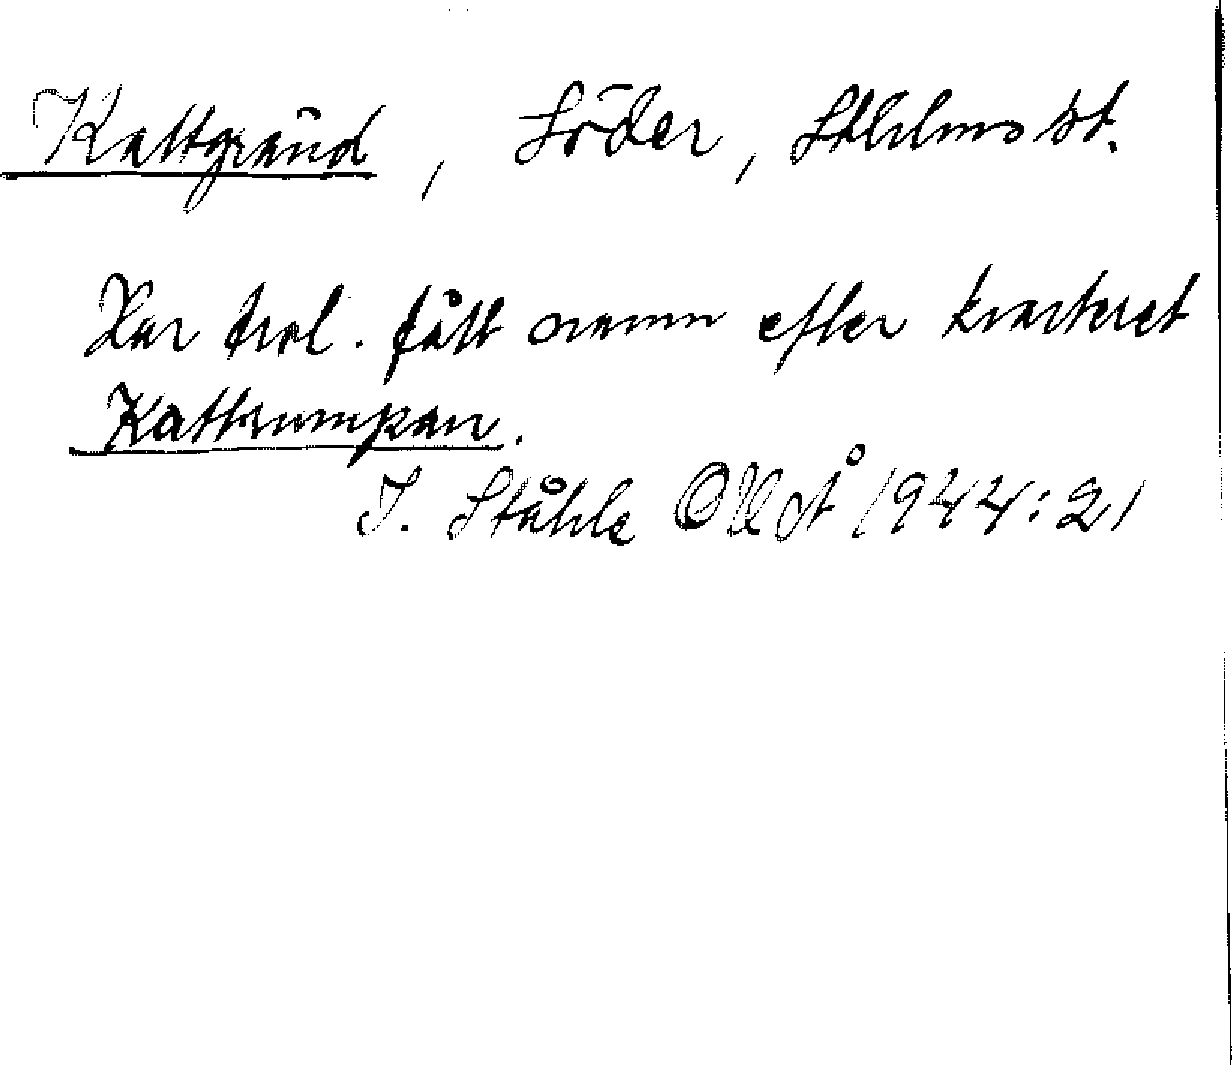 Kattgränd, Söder, Sthlms st.
Har trol. fått namn efter kvarteret
Kattrumpan.
I. Ståhle ONoÅ 1944:21